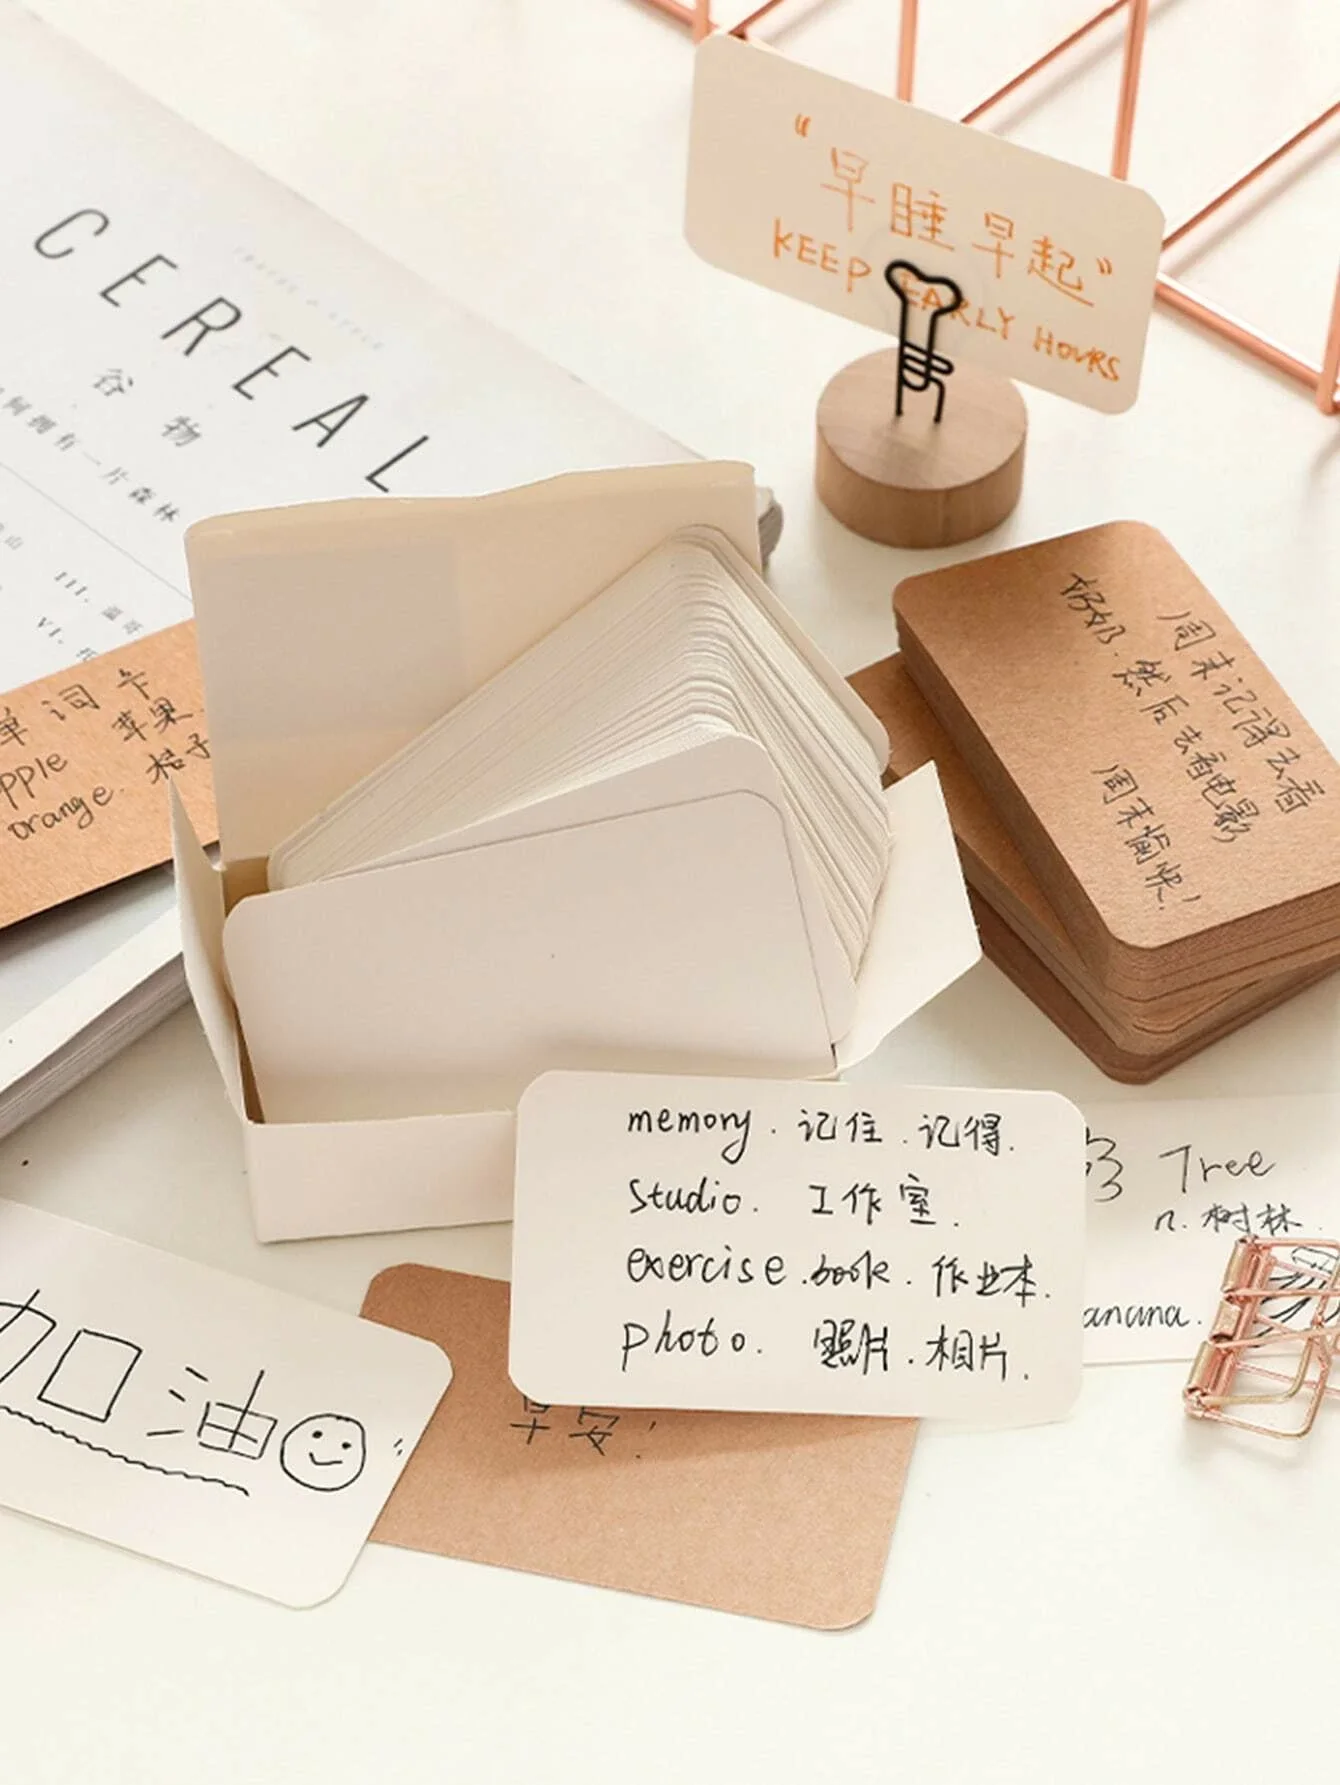 CEREAL
谷物
何拥有一片森林
山
III. 温哥
VI. 托
"早睡早起"
KEEP EARLY HOURS
单词卡
pple 苹果
orange. 桔子
周末记得去看
奶奶. 然后去看电影
周末愉快!
memory. 记住. 记得.
studio. 工作室.
exercise.book. 作业本.
photo. 照片. 相片.
Tree
n. 树林.
anana.
加油
早安!